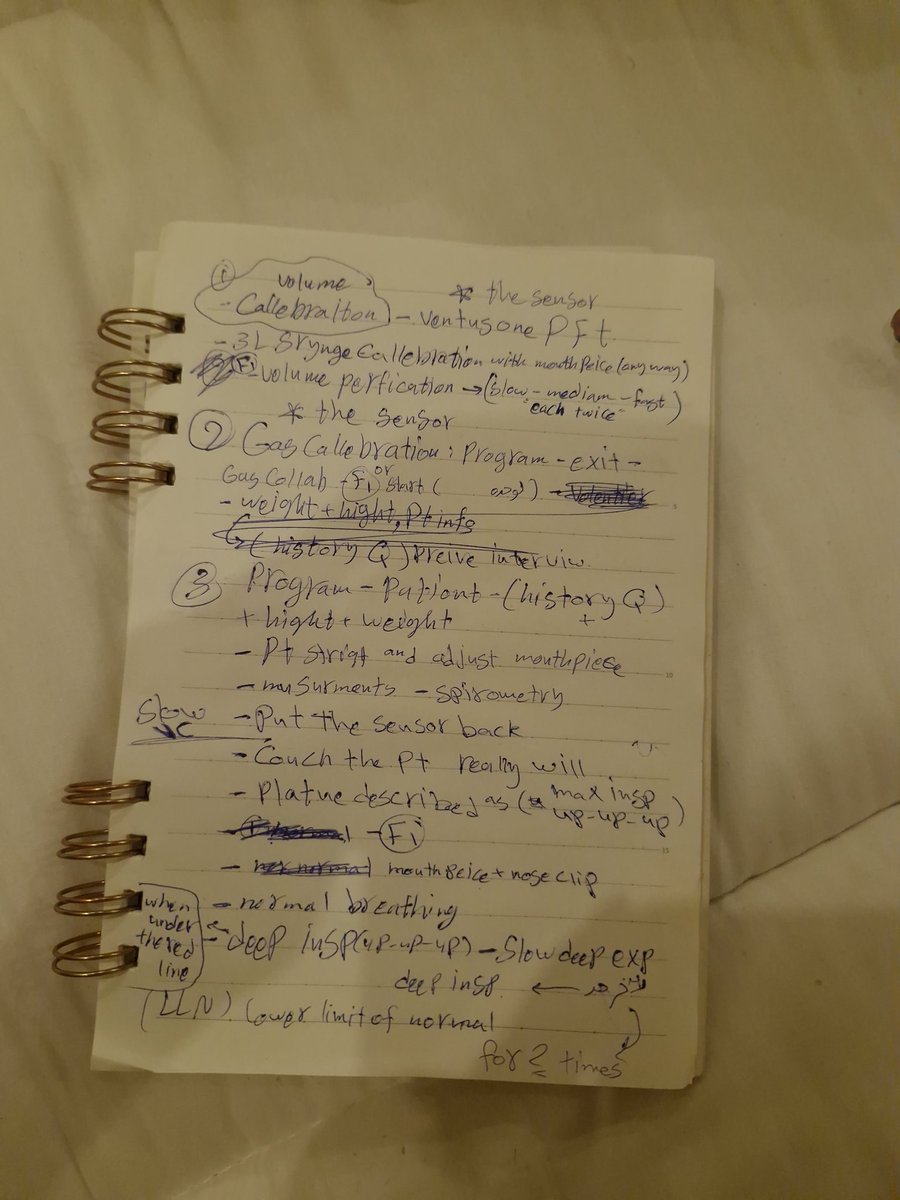 ① volume
- Callebraiton - ventusone Pft
* the sensor
- 3L Srynge Callebration with mouthPeice (any way)
F1 - volume perfication → (slow - mediam - fast)
"each twice"
* the sensor
② Gas Callebration: Program - exit -
Gas Collab - F1 or Start ( ) -
- weight + hight, Pt info
(history Q) Preive interviw.
③ Program - Pationt - (history Q)
+ hight + weight +
- Pt strigt and adjust mouthpiese
- musurments - spirometry
Slow VC
- Put the sensor back
- Couch the Pt really will
- Platue described as (max insp
up-up-up)
- F1
- mouthpeice + nose clip
- normal breathing
when under the red line
- deep insp (up-up-up) - Slow deep exp
deep insp ←
(LLN) Lower limit of normal
for 2 times